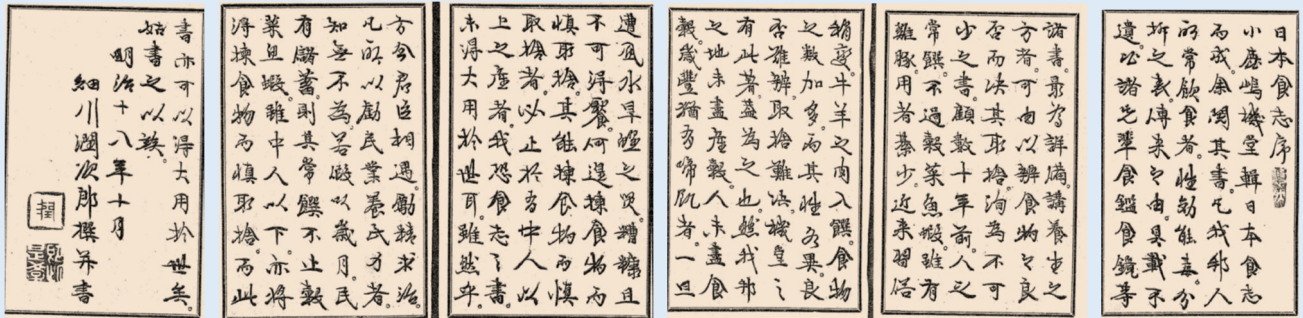 日本食志序
小鹿嶋機堂輯日本食志
而成余閲其書凡我邦人
所常飲食者性効能毒分
析之表傳来之由具載不
遺比諸先輩食鑑食鏡等
諸書最為詳備。講養生之
方者。可由以辨食物之良
否而决其取捨。洵為不可
少之書。顧數十年前。人之
常饌。不過穀菜魚蝦。雖有
雞豚。用者綦少。近来習俗
稍變。牛羊之肉入饌。食物
之數加多。而其性各異。良
否雖辨。取捨難决。機堂之
有此著。蓋為之也。然我邦
之地未盡産穀。人未盡食
穀。歳豐猶多啼飢者。一旦
遭風水旱蝗之災。糟糠且
不可得饜。何遑揀食物而
慎取捨。其能揀食物而慎
取捨者。以止於有中人以
上之産者。我恐食志之書。
未得大用於世耳。雖然
方今君臣相遇。勵精求治。
凡所以勸民業養民力者。
知無不為。若假以歳月。民
有儲蓄。則其常饌不止穀
菜魚蝦。雖中人以下。亦將
得揀食物而慎取捨。而此
書亦可以得大用於世矣。
姑書之以竢。
明治十八年十月
細川潤次郎撰并書